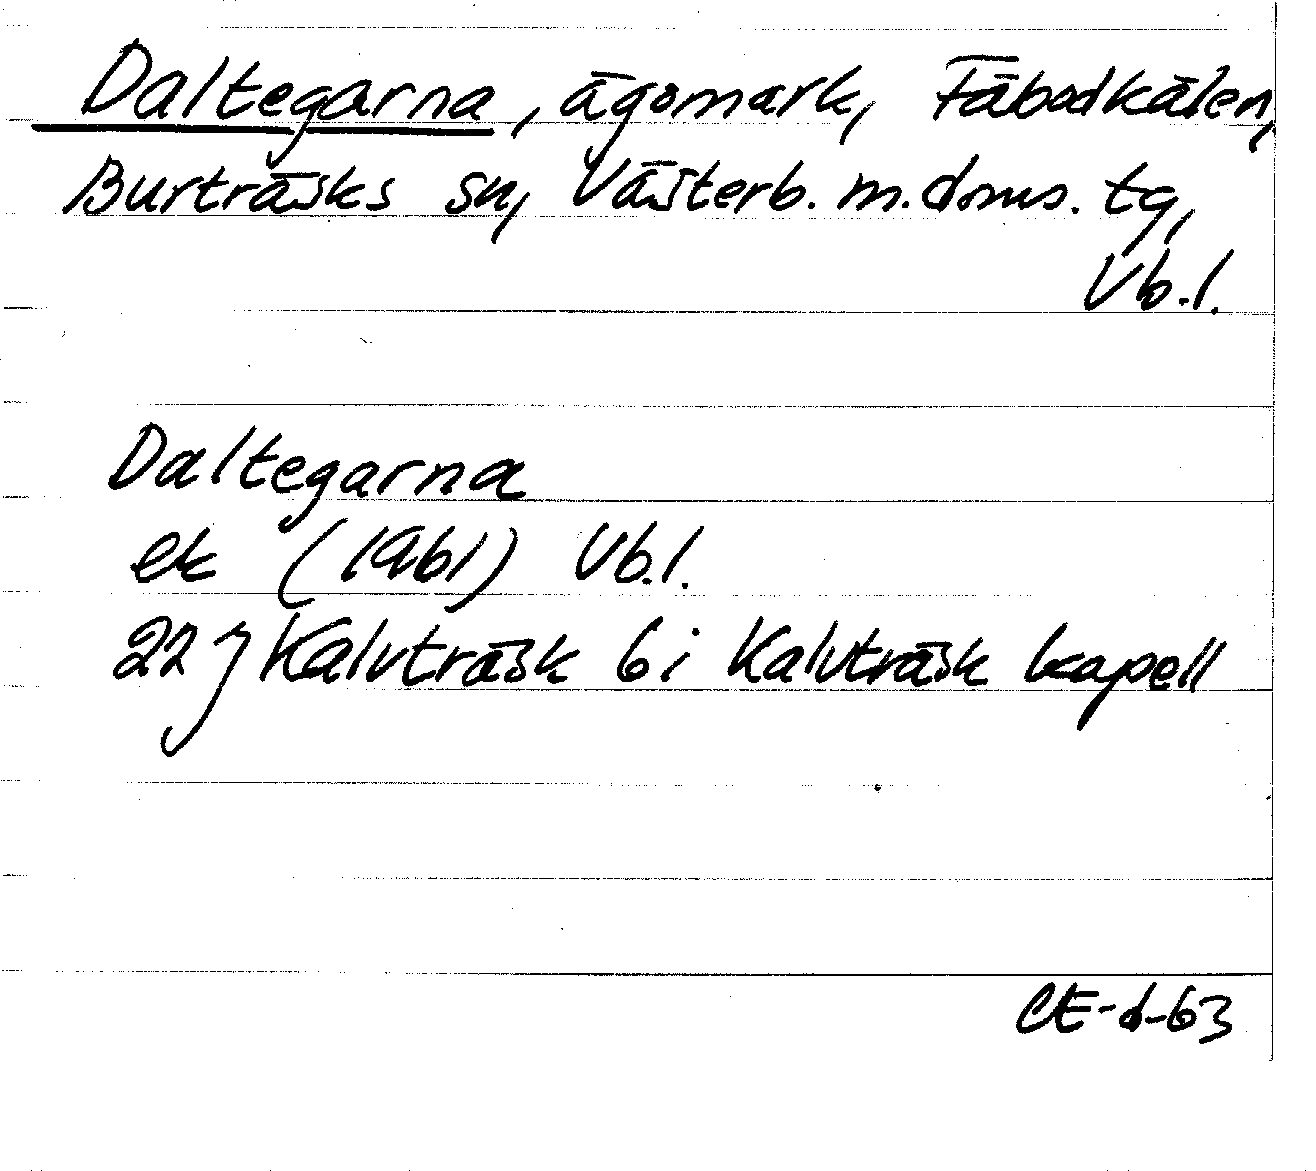 Daltegarna, ägomark, Fäbodkålen,
Burträsks sn, Västerb. m. doms. tg,
Vb.l.
Daltegarna
ek (1961) Vb.l.
22 J Kalvträsk 6 i Kalvträsk kapell
CE-d-63